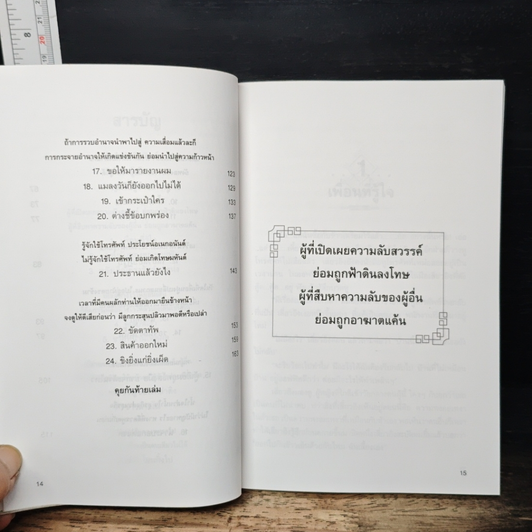 ถ้าการรวบอำนาจนำพาไปสู่ ความเสื่อมแล้วละก็
การกระจายอำนาจให้เกิดแข่งขันกัน ย่อมนำไปสู่ความก้าวหน้า
17. ขอให้มารายงานผม 123
18. แมลงวันก็ยังออกไปไม่ได้ 129
19. เข้ากระเป๋าใคร 135
20. ต่างชี้ข้อบกพร่อง 137
รู้จักใช้โทรศัพท์ ประโยชน์อเนกอนันต์
ไม่รู้จักใช้โทรศัพท์ ย่อมเกิดโทษมหันต์
21. ประธานแล้วยังไง 143
เวลาที่มีคนผลักท่านให้ออกมายืนข้างหน้า
จงดูให้ดีเสียก่อนว่า มีลูกกระสุนปลิวมาพอดีหรือเปล่า
22. ขัดตาทัพ 153
23. สินค้าออกใหม่ 161
24. ชิงยิ่งแก่ยิ่งเผ็ด 163
คุยกันท้ายเล่ม
14
ผู้ที่เปิดเผยความลับสวรรค์
ย่อมถูกฟ้าดินลงโทษ
ผู้ที่สืบหาความลับของผู้อื่น
ย่อมถูกอาฆาตแค้น
15